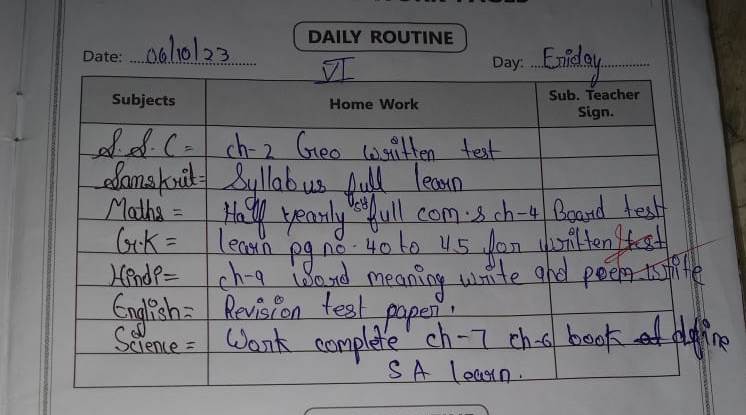 DAILY ROUTINE
Date: 06/10/23
VI
Day: Friday
Subjects Home Work Sub. Teacher Sign.
S.S.C = ch-2 Geo written test
Sanskrit = Syllabus full learn
Maths = Half yearly full com. & ch-4 Board test
G.K = learn pg no. 40 to 45 for written test
Hindi = ch-9 word meaning write and poem write
English = Revision test paper.
Science = Work complete ch-7 ch-6 book define
SA learn.